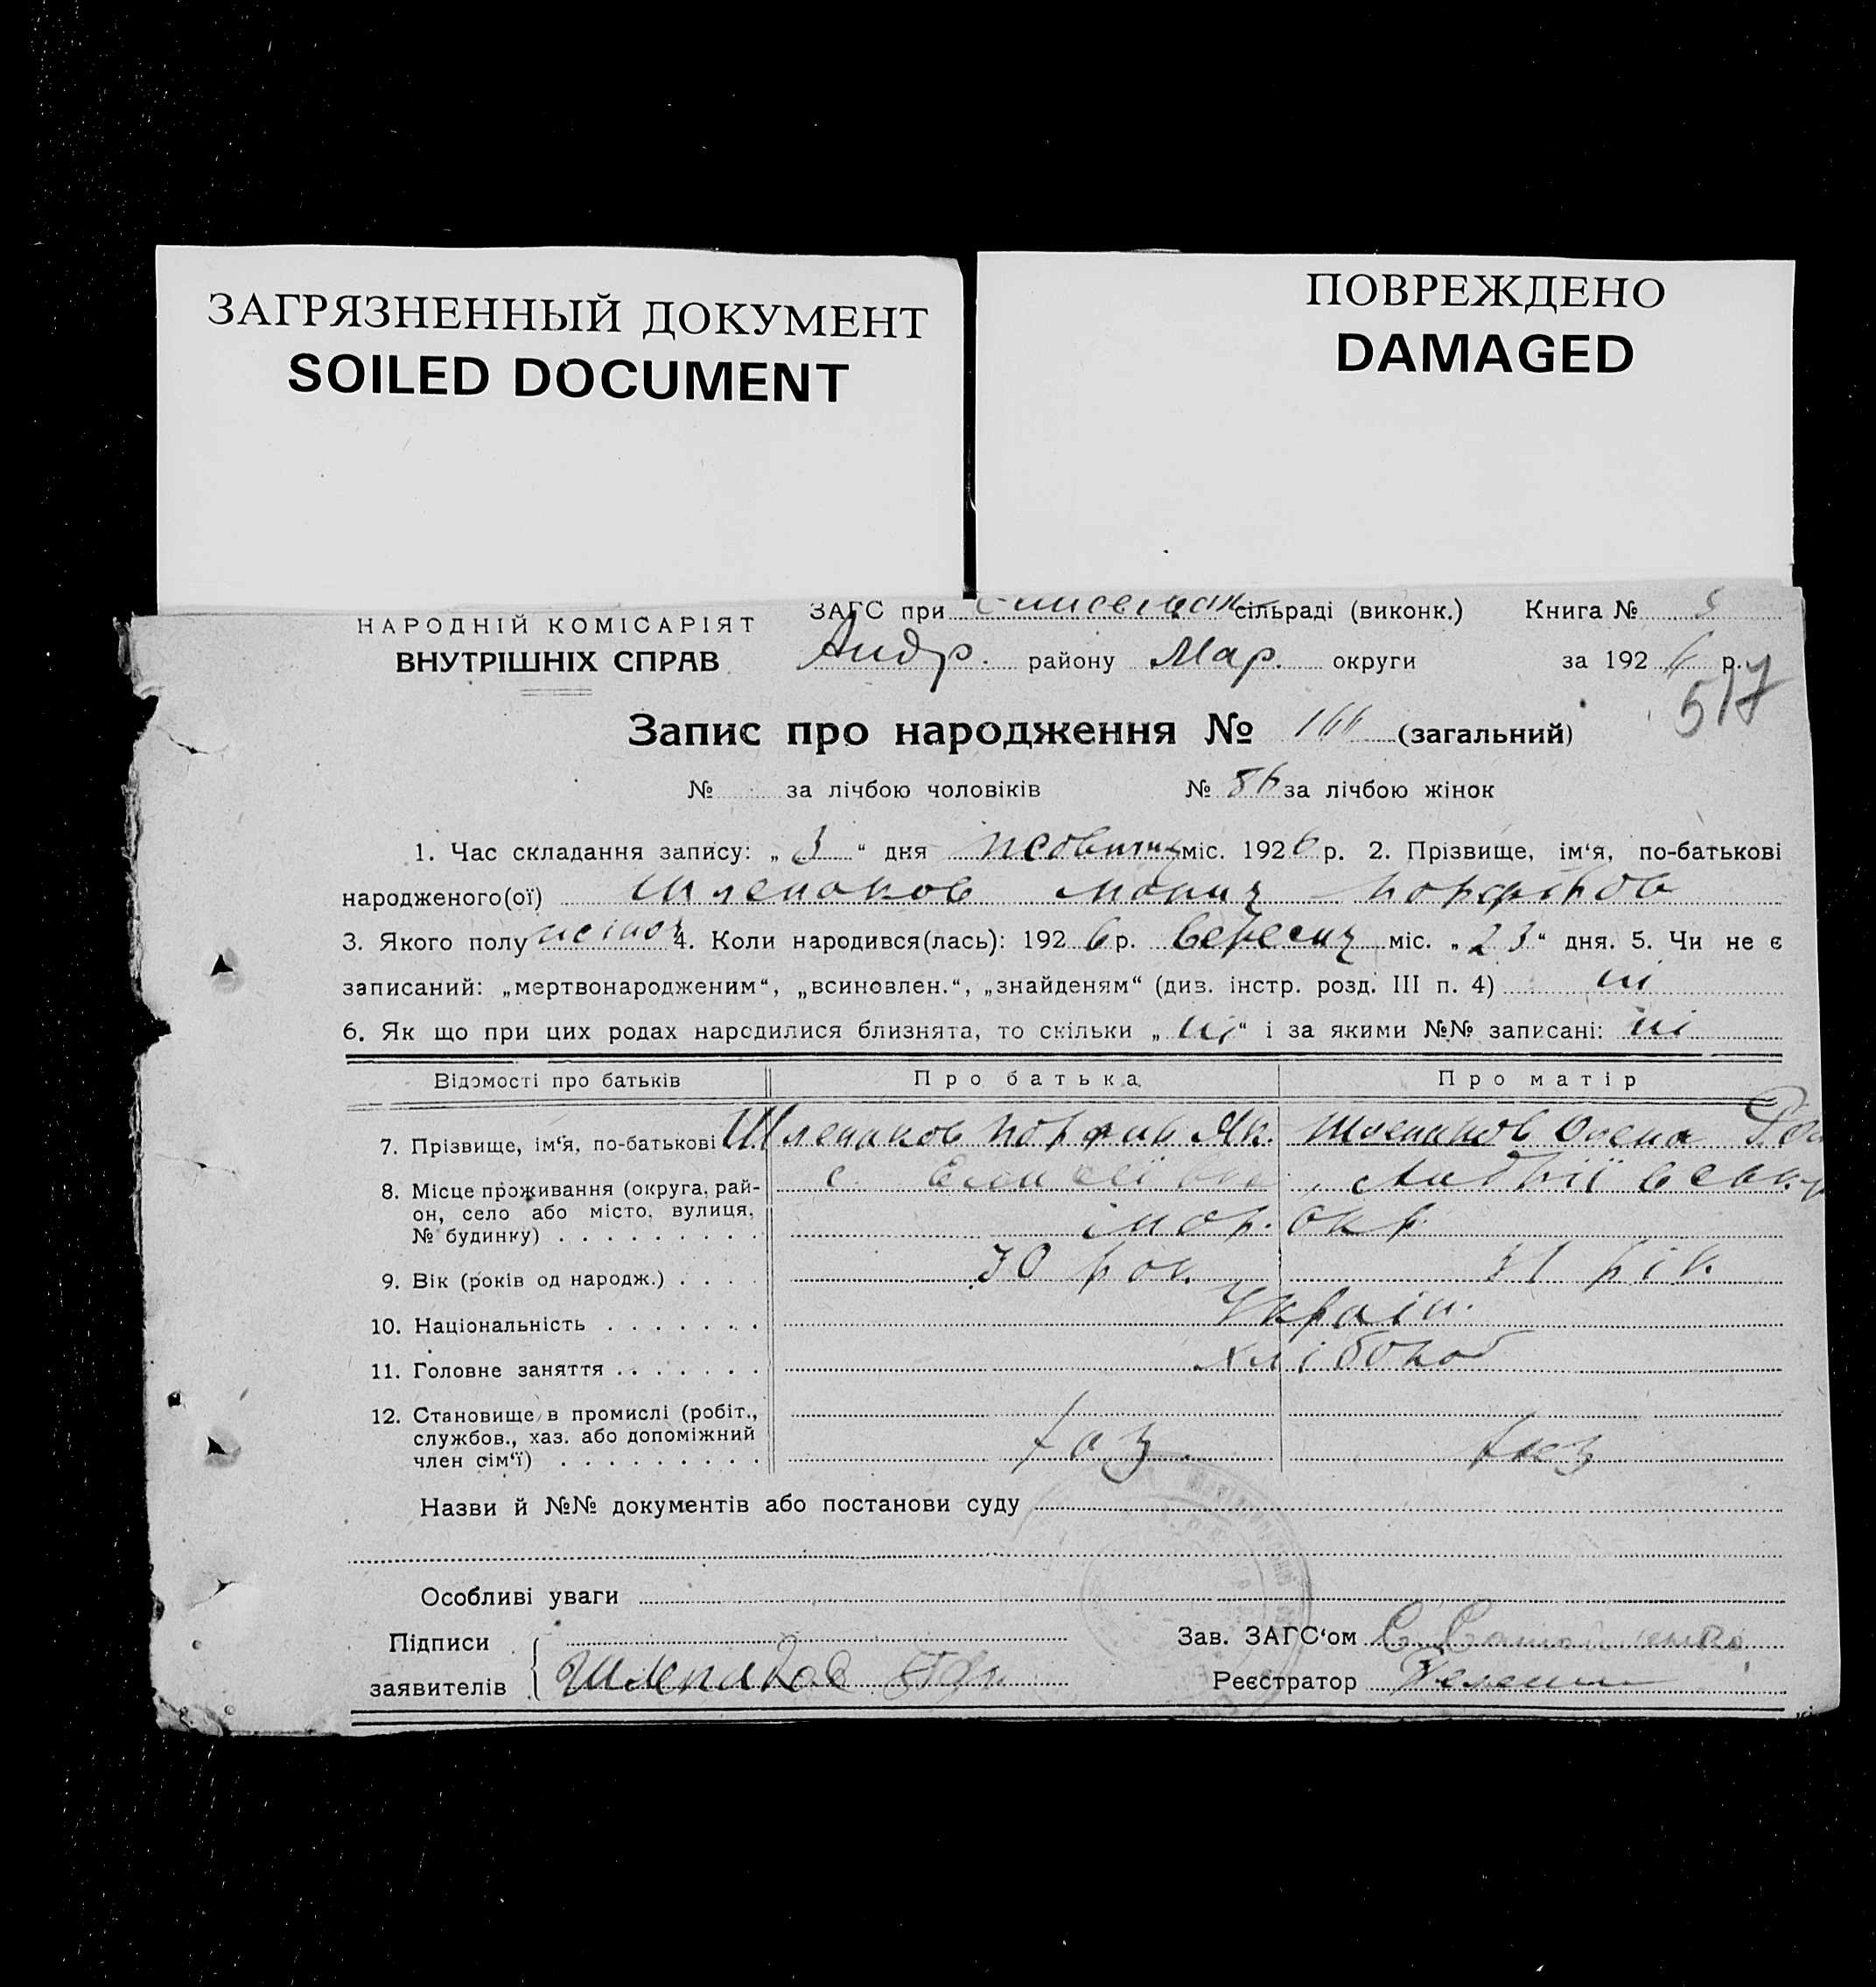 ЗАГРЯЗНЕННЫЙ ДОКУМЕНТ
SOILED DOCUMENT
ПОВРЕЖДЕНО
DAMAGED
НАРОДНІЙ КОМІСАРІЯТ
ВНУТРІШНІХ СПРАВ
ЗАГС при сільраді (виконк.) Книга №
Андр. району Мар. округи за 1926 р.
517
Запис про народження № 166 (загальний)
№ за лічбою чоловіків № 86 за лічбою жінок
1. Час складання запису: „3“ дня жовтня міс. 1926 р. 2. Прізвище, ім‘я, по-батькові
народженого(ої) Шлепаков
3. Якого полу жіноч 4. Коли народився(лась): 1926 р. вересня міс. „23“ дня. 5. Чи не є
записаний: „мертвонародженим“, „всиновлен.“, „знайденям“ (див. інстр. розд. III п. 4) ні
6. Як що при цих родах народилися близнята, то скільки „ні“ і за якими №№ записані: ні
Відомості про батьків Про батька Про матір
7. Прізвище, ім‘я, по-батькові Шлепаков Порфир Як. Шлепаков Олена
8. Місце проживання (округа, рай-
он, село або місто, вулиця,
№ будинку) с.
мар. окр.
9. Вік (років од народж.) 30 рок. 31 рік.
10. Національність Україн.
11. Головне заняття хлібороб
12. Становище в промислі (робіт.,
службов., хаз. або допоміжний
член сім‘ї) хаз. хаз
Назви й №№ документів або постанови суду
Особливі уваги
Підписи
заявителів Шлепаков
Зав. ЗАГС‘ом
Реєстратор